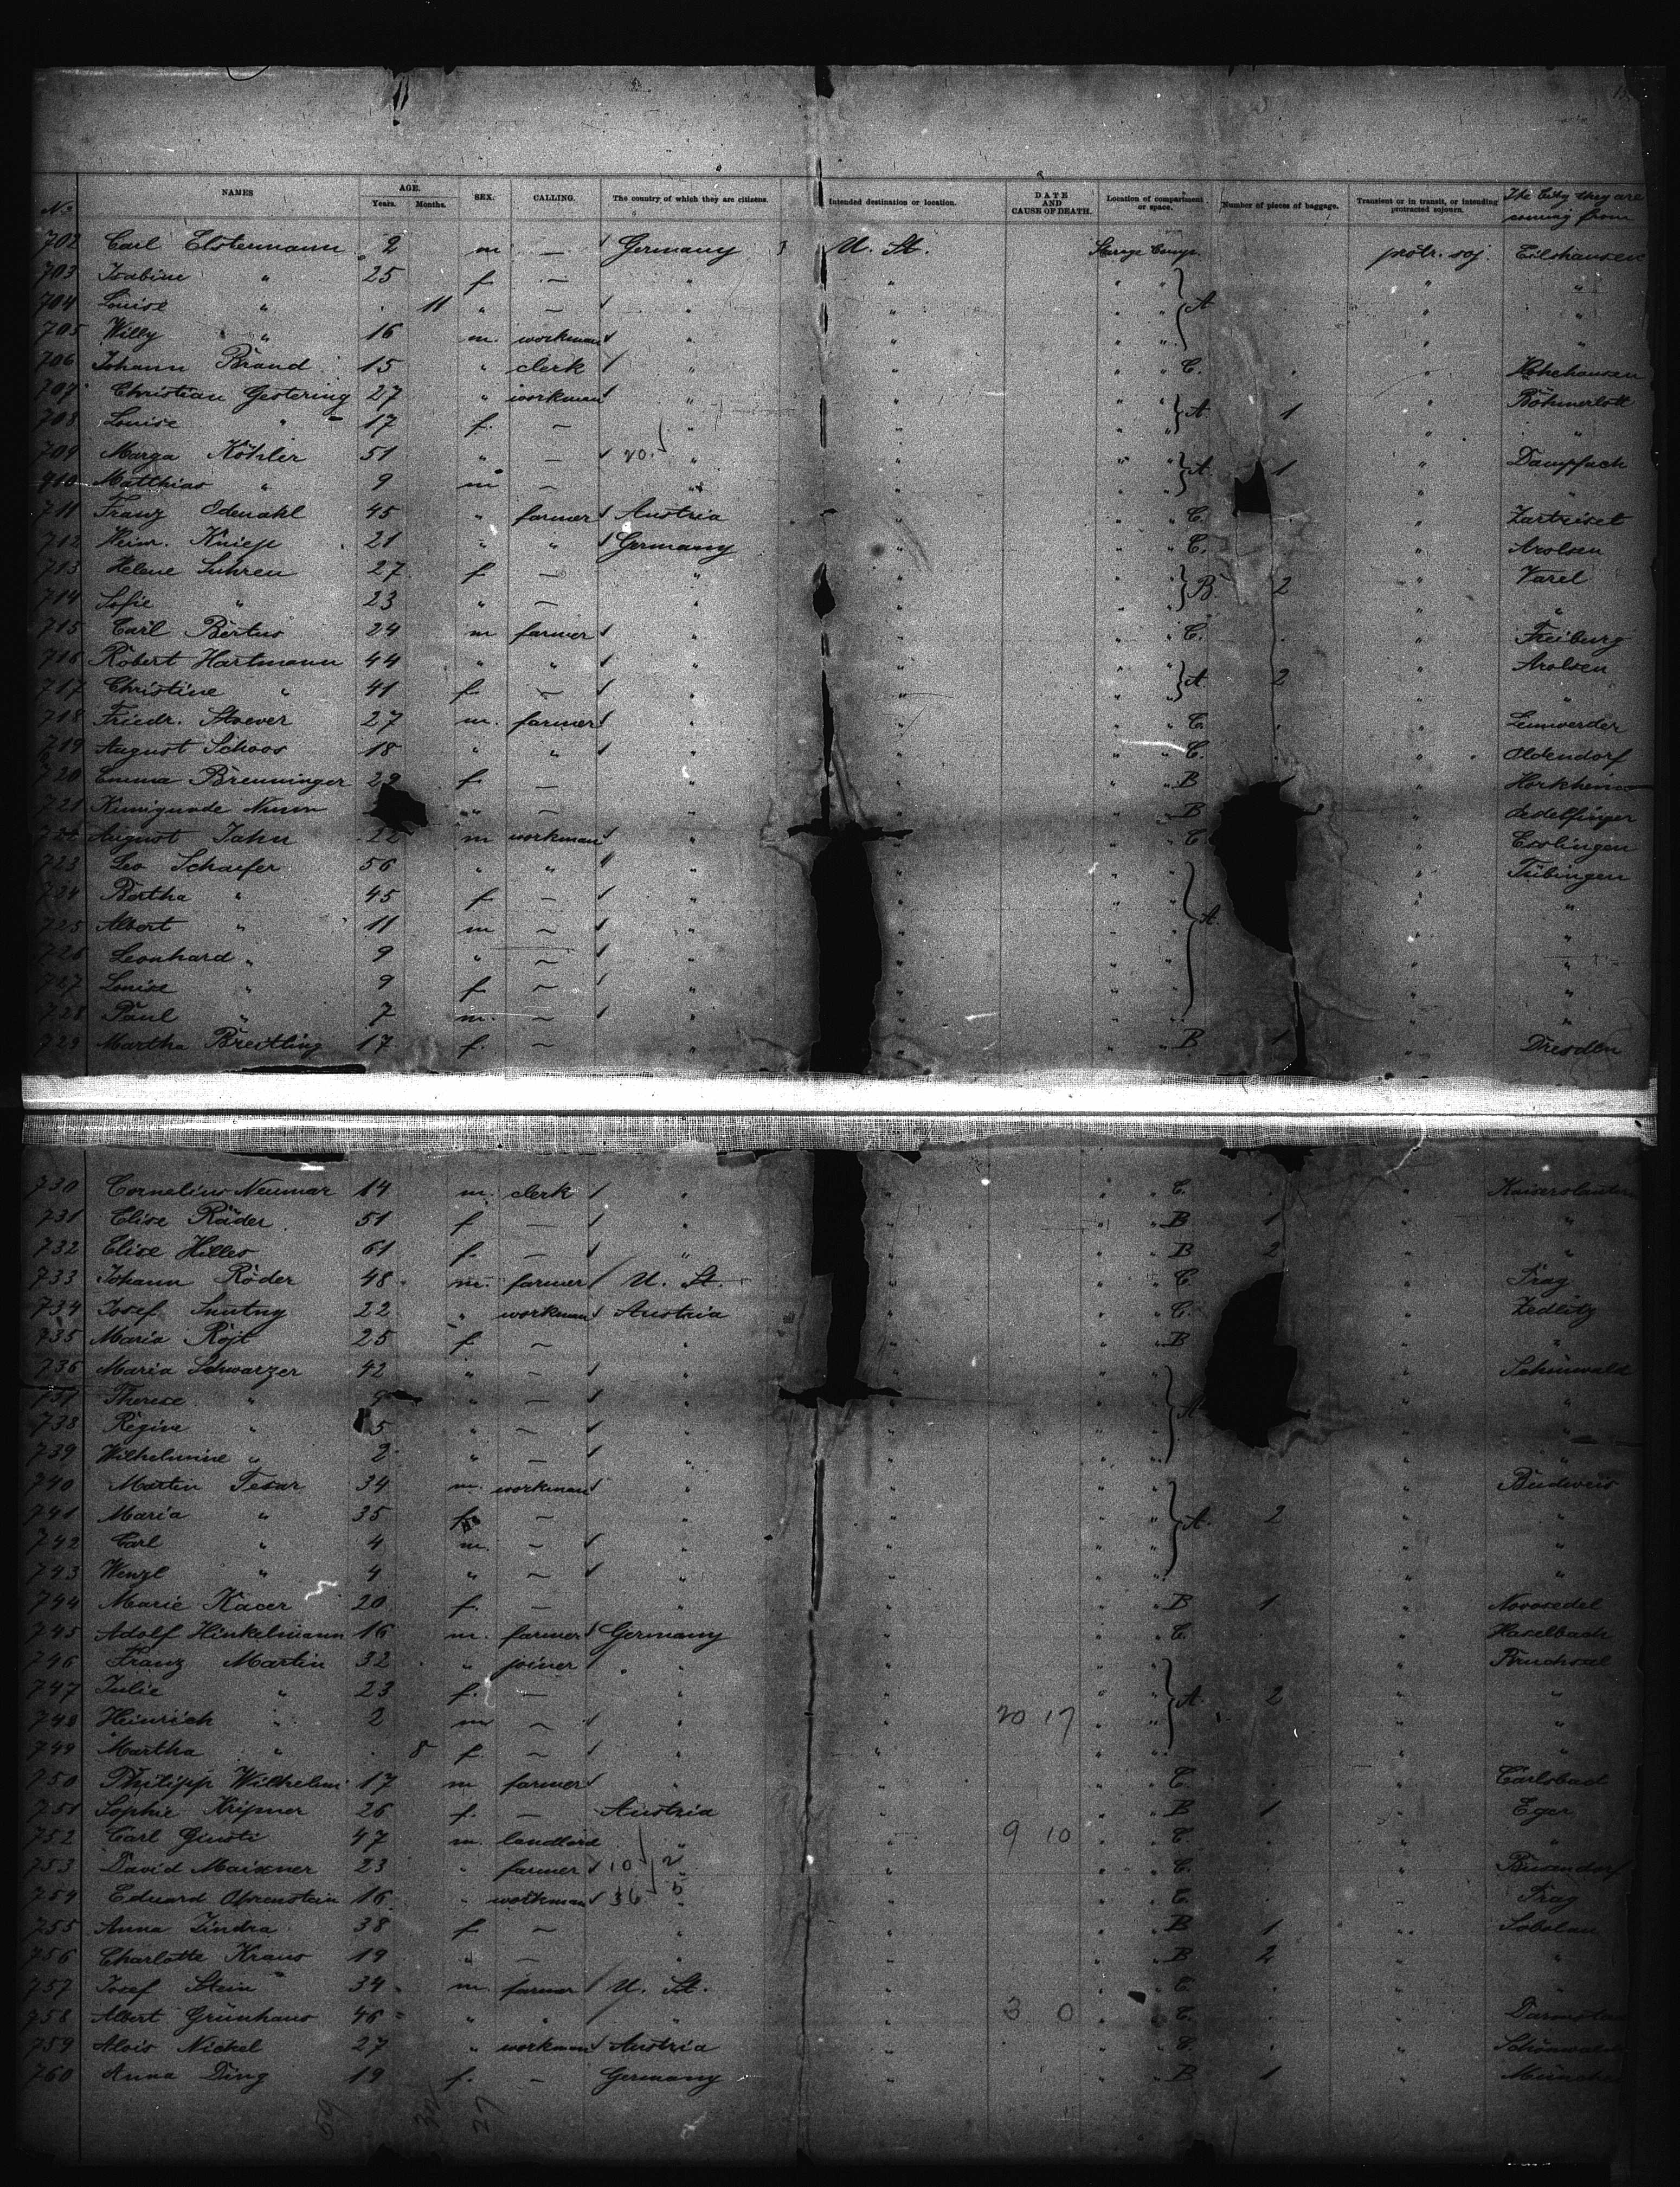 No. NAMES AGE. Years. Months. SEX. CALLING. The country of which they are citizens. Intended destination or location. DATE AND CAUSE OF DEATH. Location of compartment or space. Number of pieces of baggage. Transient or in transit, or intending protracted sojourn. The City they are coming from
702 Carl Elstermann 2 m — Germany U. St. Steerage Comp. protr. soj. Eilshausen
703 Isabine " 25 f — " " " " " "
704 Louise " 11 " — " " " " A " "
705 Willy " 16 m. workman " " " " " "
706 Johann Brand 15 " clerk " " " " C. "
707 Christian Gestering 27 " workman " " " " A 1 "
708 Louise " 17 f. — " " " " " "
709 Marga Köhler 51 " — 20. " " " " A 1 " Dampfach
710 Matthias " 9 m — " " " " " "
711 Franz 45 " farmer Austria " " " C. "
712 Heinr. Kniep 21 " " Germany " " " C. " Arolsen
713 Helene Suhren 27 f — " " " " B. 2 " Varel
714 Sofie " 23 " — " " " " " "
715 Carl Bertus 24 m farmer " " " " C. " Freiburg
716 Robert Hartmann 44 " " " " " " A 2 " Arolsen
717 Christine " 41 f — " " " " " "
718 Friedr. Stoever 27 m. farmer " " " " C. " Lemwerder
719 August Schoos 18 " " " " " " C. " Oldendorf
720 Emma Brenninger 29 f — " " " " B 1 " Horkheim
721 Kunigunde " — " " " " B "
722 August Jahn 22 m workman " " " " C " Esslingen
723 Leo Schaefer 56 " " " " " " A. " Tübingen
724 Bertha " 45 f — " " " " " "
725 Albert " 11 m — " " " " " "
726 Leonhard " 9 " — " " " " " "
727 Louise " 9 f — " " " " " "
728 Paul " 7 m. — " " " " " "
729 Martha Breitling 17 f. — " " " " B 1 " Dresden
730 Cornelius Neumar 14 m. clerk " " " " C. " Kaiserslautern
731 Elise Räder 51 f — " " " " B 1 " "
732 Elise Hilles 61 f. — " " " " B 2 " "
733 Johann Röder 48 m. farmer U. St. " " " C. " Prag
734 Josef Smutny 22 " workman Austria " " " C. " Zedlitz
735 Maria Rojt 25 f — " " " " B " "
736 Maria Schwarzer 42 " — " " " " A " Schönwald
737 Therese " 9 " — " " " " " "
738 Regine " 5 " — " " " " " "
739 Wilhelmine " 2 " — " " " " " "
740 Martin Tesar 34 m. workman " " " " A. 2 " Budweis
741 Maria " 35 f — " " " " " "
742 Carl " 4 m. — " " " " " "
743 Wenzl " 4 " — " " " " " "
744 Marie Kacer 20 f. — " " " " B 1 " Novosedel
745 Adolf Hinkelmann 16 m. farmer Germany " " " C. " Haselbach
746 Franz Martin 32 " joiner " " " " A 2 " Bruchsal
747 Julie " 23 f. — " " " " " "
748 Heinrich " 2 m — " " 20 17 " " " "
749 Martha " 8 f. — " " " " " "
750 Philipp Wilhelmi 17 m farmer " " " " C. " Carlsbad
751 Sophie Kripner 26 f. — Austria " " " B 1 " Eger
752 Carl Giusti 47 m. landlord " " 9 10 " " C. " "
753 David Maixner 23 " farmer 10 2 " " " " C. "
754 Eduard Ohrenstein 16 " workman 36 5 " " " " C. " Prag
755 Anna Zindra 38 f — " " " " B 1 " Sobolau
756 Charlotte Kraus 19 " — " " " " B 2 " "
757 Josef Stein 34 m. farmer U. St. " " " C. " "
758 Albert Grünhaus 46 " " " " 3 0 " " C. "
759 Alois Nickel 27 " workman Austria " " " C. " Schönwald
760 Anna Ding 19 f. — Germany " " " B 1 "
59 32 27